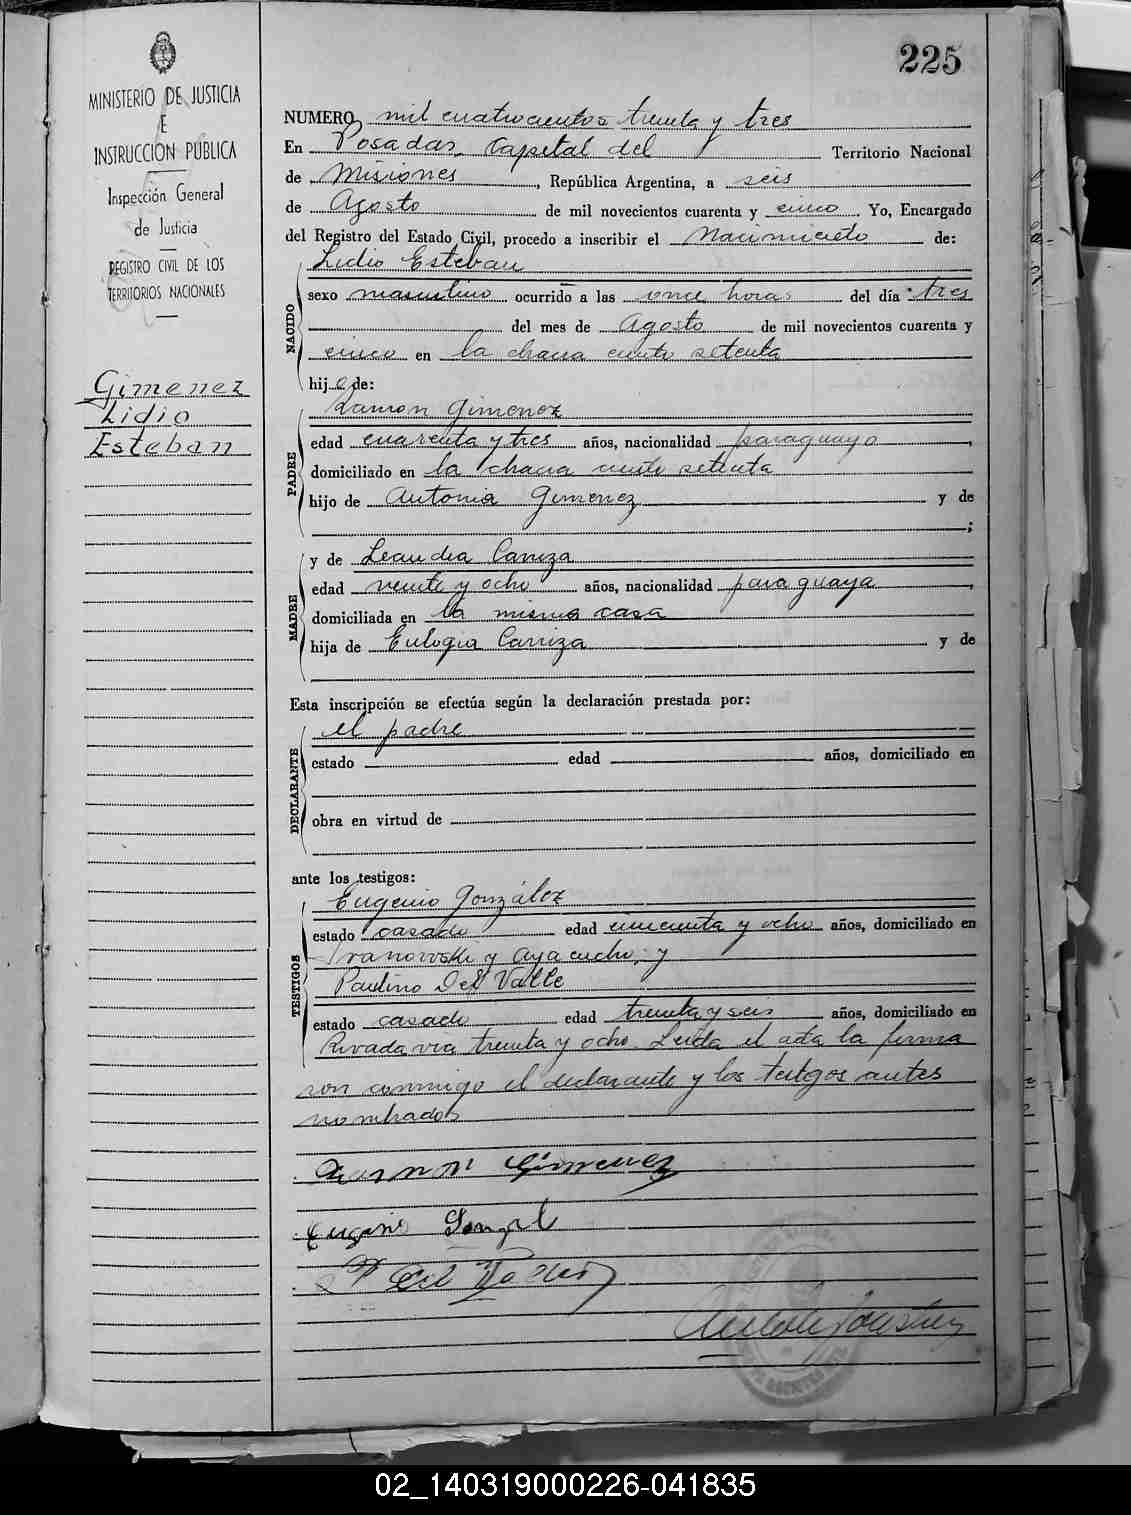 225
MINISTERIO DE JUSTICIA
E
INSTRUCCIÓN PÚBLICA
Inspección General
de Justicia
REGISTRO CIVIL DE LOS
TERRITORIOS NACIONALES
Gimenez
Lidio
Esteban
NUMERO mil cuatrocientos treinta y tres
En Posadas, Capital del Territorio Nacional
de Misiones, República Argentina, a seis
de Agosto de mil novecientos cuarenta y cinco Yo, Encargado
del Registro del Estado Civil, procedo a inscribir el Nacimiento de:
NACIDO
Lidio Esteban
sexo masculino ocurrido a las once horas del día tres
del mes de Agosto de mil novecientos cuarenta y
cinco en la chacra ciento setenta
hijo de:
PADRE
Ramon Gimenez
edad cuarenta y tres años, nacionalidad paraguayo,
domiciliado en la chacra ciento setenta
hijo de Antonia Gimenez y de
;
MADRE
y de Leandra Carriza
edad veinte y ocho años, nacionalidad paraguaya,
domiciliada en la misma casa
hija de Eulogia Carriza y de
Esta inscripción se efectúa según la declaración prestada por:
DECLARANTE
el padre
estado edad años, domiciliado en
obra en virtud de
ante los testigos:
TESTIGOS
Eugenio González
estado casado edad cincuenta y ocho años, domiciliado en
Ivanowski y Ayacucho, y
Paulino Del Valle
estado casado edad treinta y seis años, domiciliado en
Rivadavia treinta y ocho. Leida el acta la firma
ron conmigo el declarante y los testigos antes
nombrados
Ramon Gimenez
Eugenio Gonzal
P Del Valle
02_140319000226-041835